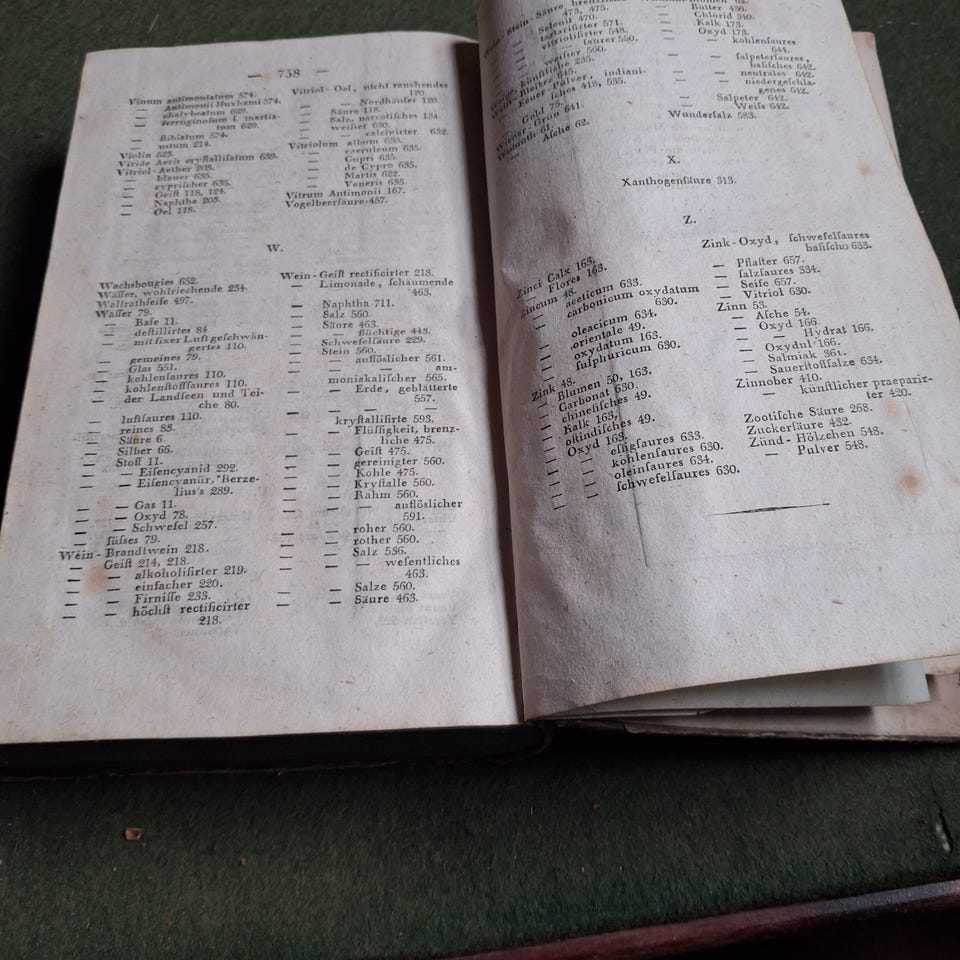 — 738 —
Vinum antimoniatum 574.
— Antimonii Huxhami 574.
— chalybeatum 629.
— ferruginosum ſ. martia-
tum 629.
— ſtibiatum 574.
— ustum 214.
Violin 523.
Viride Aeris cryſtalliſatum 639.
Vitriol-Aether 203.
— blauer 635.
— cypriſcher 635.
— Geiſt 118, 124.
— Naphtha 203.
— Oel 118.
Vitriol-Oel, nicht rauchendes
120.
— — Nordhäuſer 120
— Säure 118.
— Salz, narcotiſches 134.
— weiſser 630.
— — calcinirter 632.
Vitriolum album 630.
— caeruleum 635.
— Cupri 635.
— de Cypro 635.
— Martis 622.
— Veneris 635.
Vitrum Antimonii 167.
Vogelbeerſäure 457.
W.
Wachsbougies 652.
Wäſſer, wohlriechende 234.
Wallrathſeife 497.
Waſſer 79.
— Baſe 11.
— deſtillirtes 84
— mit fixer Luft geſchwän-
gertes 110.
— gemeines 79.
— Glas 551.
— kohlenſaures 110.
— kohlenſtoffſaures 110.
— der Landſeen und Tei-
che 80.
— luftſaures 110.
— reines 83.
— Säure 6.
— Silber 66.
— Stoff 11.
— — Eiſencyanid 292.
— — Eiſencyanür, Berze-
lius's 289.
— — Gas 11.
— — Oxyd 78.
— — Schwefel 257.
— ſüſses 79.
Wein-Brandtwein 218.
— Geiſt 214, 218.
— — alkoholiſirter 219.
— — einfacher 220.
— — Firniſſe 233.
— — höchſt rectificirter
218.
Wein-Geiſt rectificirter 218.
— Limonade, ſchäumende
463.
— Naphtha 711.
— Salz 560.
— Säure 463.
— — flüchtige 443.
— Schwefelſäure 229.
— Stein 560.
— — auflöslicher 561.
— — — am-
moniakaliſcher 565.
— — Erde, geblätterte
557.
— — — —
kryſtalliſirte 593.
— — Flüſſigkeit, brenz-
liche 475.
— — Geiſt 475.
— — gereinigter 560.
— — Kohle 475.
— — Kryſtalle 560.
— — Rahm 560.
— — — auflöslicher
591.
— — roher 560.
— — rother 560.
— — Salz 536.
— — — weſentliches
463.
— — Salze 560.
— — Säure 463.
Wein-Stein-Säure, brenzliche
473, 475.
— — Selenit 470.
— — tartariſirter 571.
— — vitrioliſirter 548.
— — — ſaurer 550.
— — weiſser 560.
künſtliche 235.
645.
Pulver, indiani-
ſches 418, 535.
Gold 75.
Wiener Grün 641.
Wismuth 61.
— Aſche 62.
62.
— Butter 430.
— Chlorid 340.
— Kalk 173.
— Oxyd 173.
— — kohlenſaures
644.
— — ſalpeterſaures,
baſiſches 642.
— — neutrales 642.
— — niedergeſchla-
genes 642.
— Salpeter 642.
— Weiſs 642.
Wunderſalz 583.
X.
Xanthogenſäure 313.
Z.
Zinci Calx 163.
— Flores 163.
Zincum 48.
— aceticum 633.
— carbonicum oxydatum
630.
— oleacicum 634.
— orientale 49.
— oxydatum 163.
— ſulphuricum 630.
Zink 48.
— Blumen 50, 163.
— Carbonat 630.
— chineſiſches 49.
— Kalk 163,
— oſtindiſches 49.
— Oxyd 163.
— — eſſigſaures 633.
— — kohlenſaures 630.
— — oleinſaures 634.
— — ſchwefelſaures 630.
Zink-Oxyd, ſchwefelſaures
baſiſcho 633.
— Pflaſter 657.
— ſalzſaures 334.
— Seife 657.
— Vitriol 630.
Zinn 53.
— Aſche 54.
— Oxyd 166.
— — Hydrat 166.
— Oxydul 166.
— Salmiak 361.
— Sauerſtoffſalze 634.
Zinnober 410.
— künſtlicher praeparir-
ter 420.
Zootiſche Säure 268.
Zuckerſäure 432.
Zünd-Hölzchen 548.
— Pulver 548.